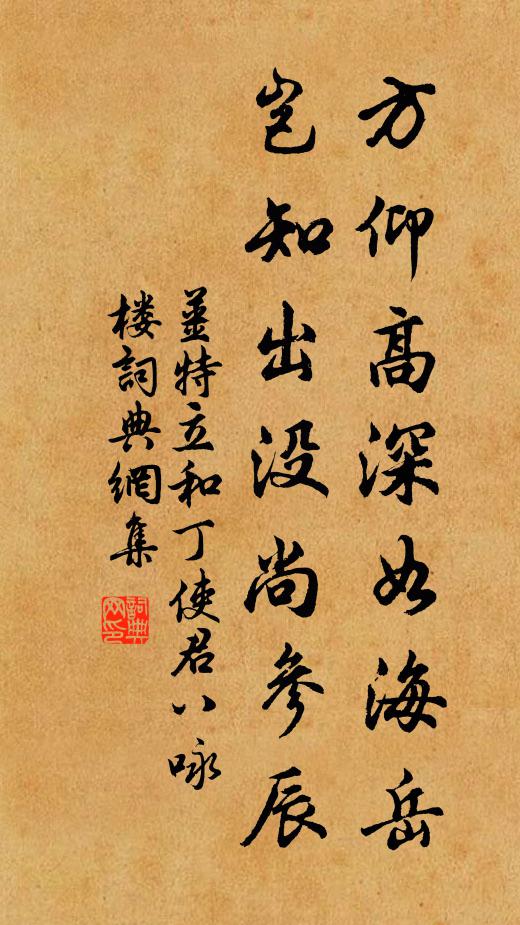 方仰高深如海岳
岂知出没尚參辰
薑特立和丁使君八咏
楼詞典網集
詞典网印